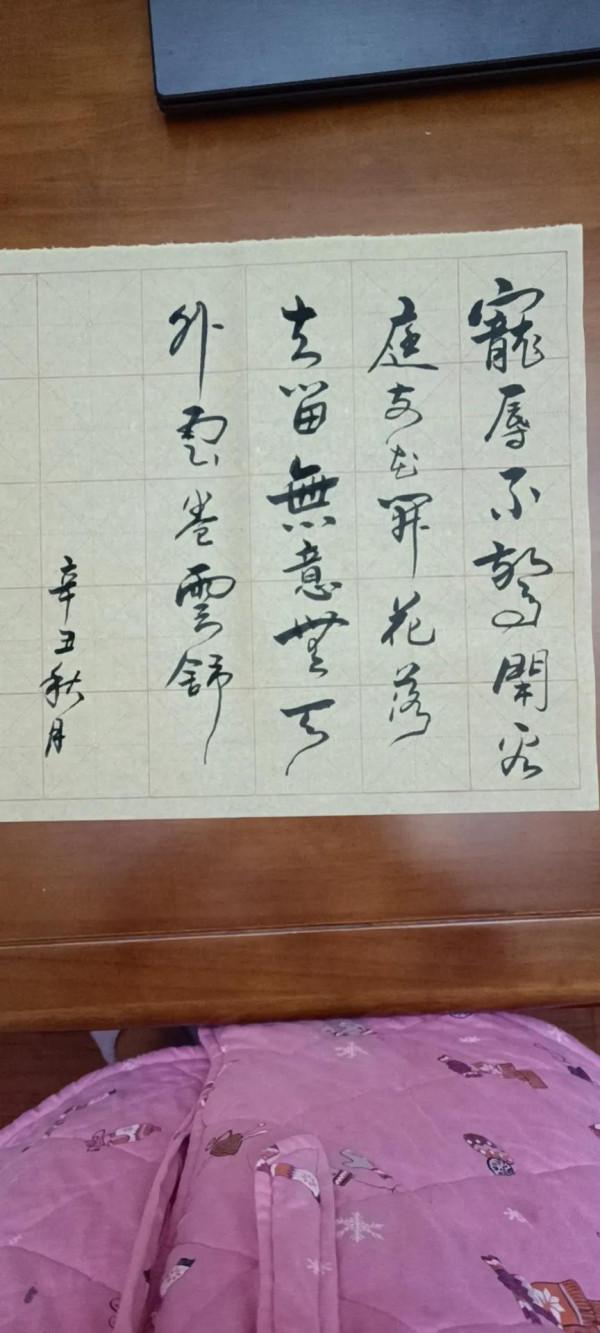 寵辱不驚閑看
庭前花開花落
去留無意天
外雲卷雲舒
辛丑秋月